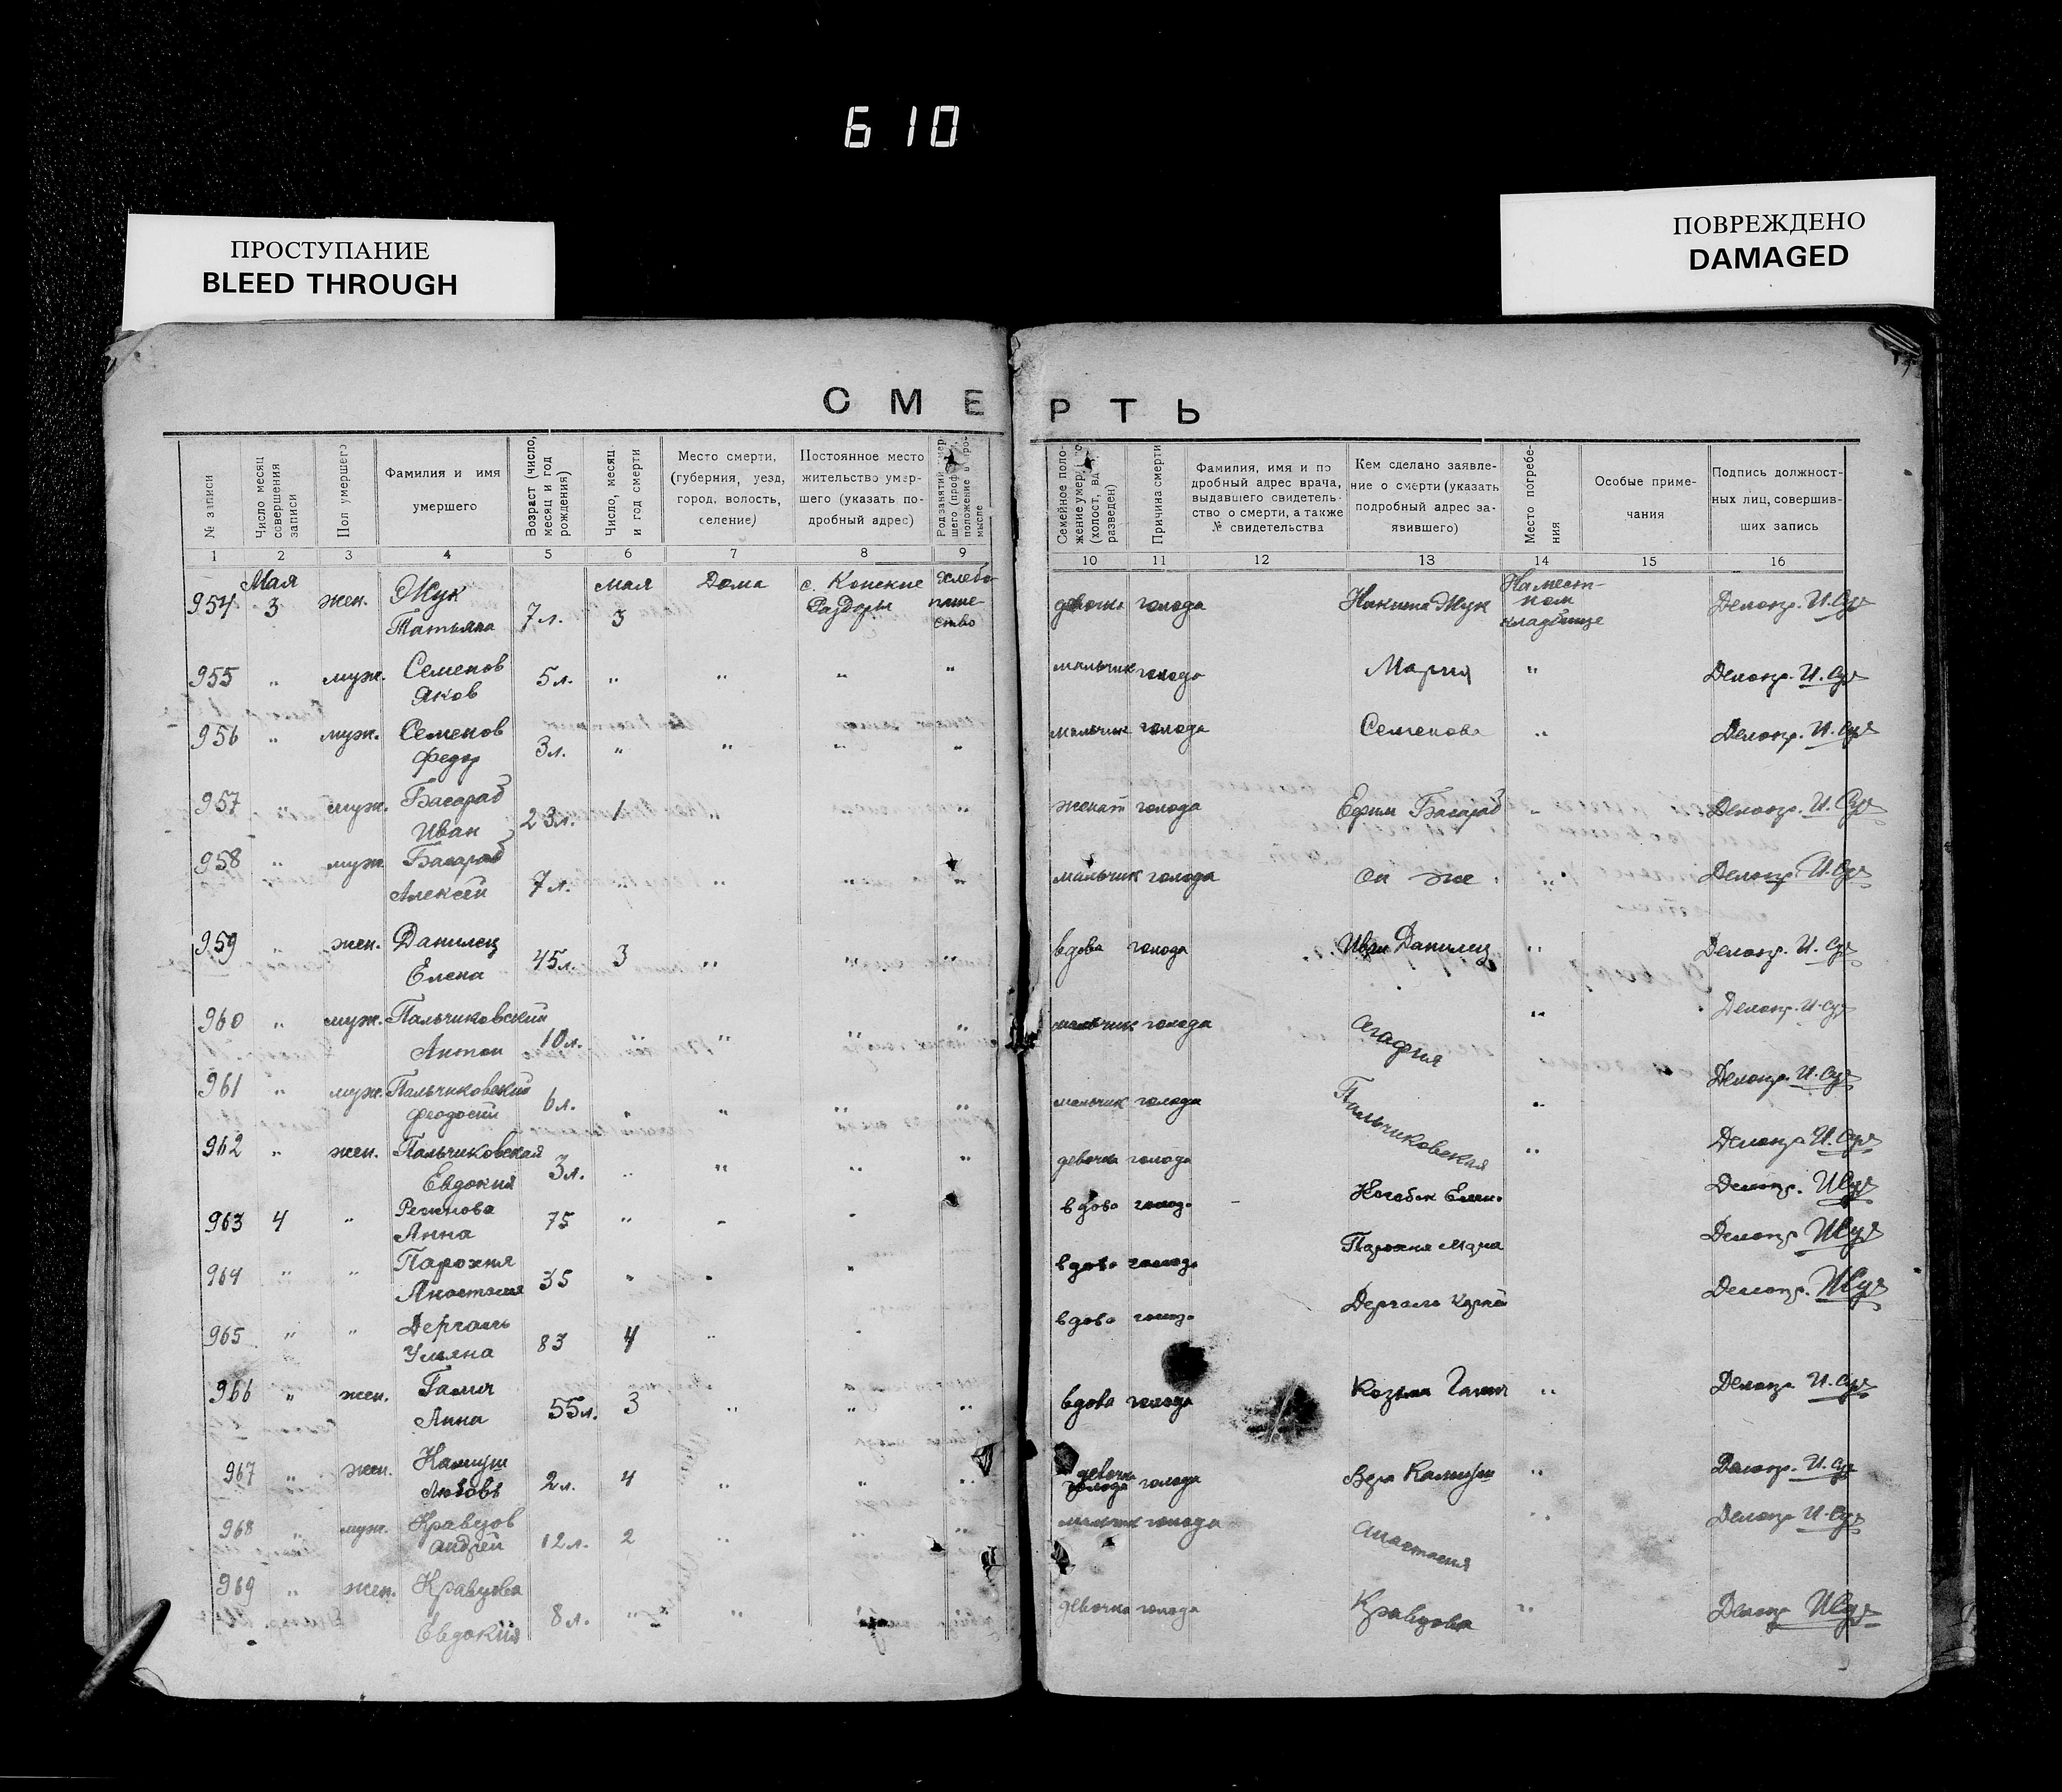 610
ПРОСТУПАНИЕ
BLEED THROUGH
ПОВРЕЖДЕНО
DAMAGED
СМЕРТЬ
№ записи
Число месяц совершения записи
Пол умершего
Фамилия и имя умершего
Возраст (число, месяц и год рождения)
Число, месяц и год смерти
Место смерти, (губерния, уезд, город, волость, селение)
Постоянное место жительство умершего (указать подробный адрес)
Семейное положение умершего (холост, вдов, разведен)
Причина смерти
Фамилия, имя и подробный адрес врача, выдавшего свидетельство о смерти, а также № свидетельства
Кем сделано заявление о смерти (указать подробный адрес заявившего)
Место погребения
Особые примечания
Подпись должностных лиц, совершивших запись
1 2 3 4 5 6 7 8 9 10 11 12 13 14 15 16
954 Мая 3 жен. Жук Татьяна 7 л. мая 3 Дома с. Конские Раздоры хлебопашество девочка голода Никита Жук На местном кладбище Делопр.
955 " муж. Семенов Яков 5 л. " " " " мальчик голода Мария " Делопр.
956 " муж. Семенов Федор 3 л. " " " " мальчик голода Семенова " Делопр.
957 " муж. Иван 23 л. 1 " женат голода Ефим " Делопр.
958 " муж. Алексей 7 л. " " " " мальчик голода он же " Делопр.
959 " жен. Данилец Елена 45 л. 3 " " " вдова голода Иван Данилец " Делопр.
960 " муж. Пальчиковский Антон 10 л. " " " " мальчик голода Агафия " Делопр.
961 " муж. Пальчиковский Феодосий 6 л. " " " " мальчик голода Пальчиковская " Делопр.
962 " жен. Пальчиковская Евдокия 3 л. " " " " девочка голода " Делопр.
963 4 " Анна 75 " " " вдова голода Делопр.
964 " " Парохня Анастасия 35 " " " вдова голода Парохня Делопр.
965 " " Дергаль Ульяна 83 4 " " вдова голода Делопр.
966 " жен. Анна 55 л. 3 " " " вдова голода Козьма " Делопр.
967 " жен. Камуш Любовь 2 л. 4 " " " девочка голода Вера " Делопр.
968 " муж. Кравцов Андрей 12 л. 2 " " " мальчик голода Анастасия " Делопр.
969 " жен. Кравцова Евдокия 8 л. " " " " девочка голода Кравцова " Делопр.